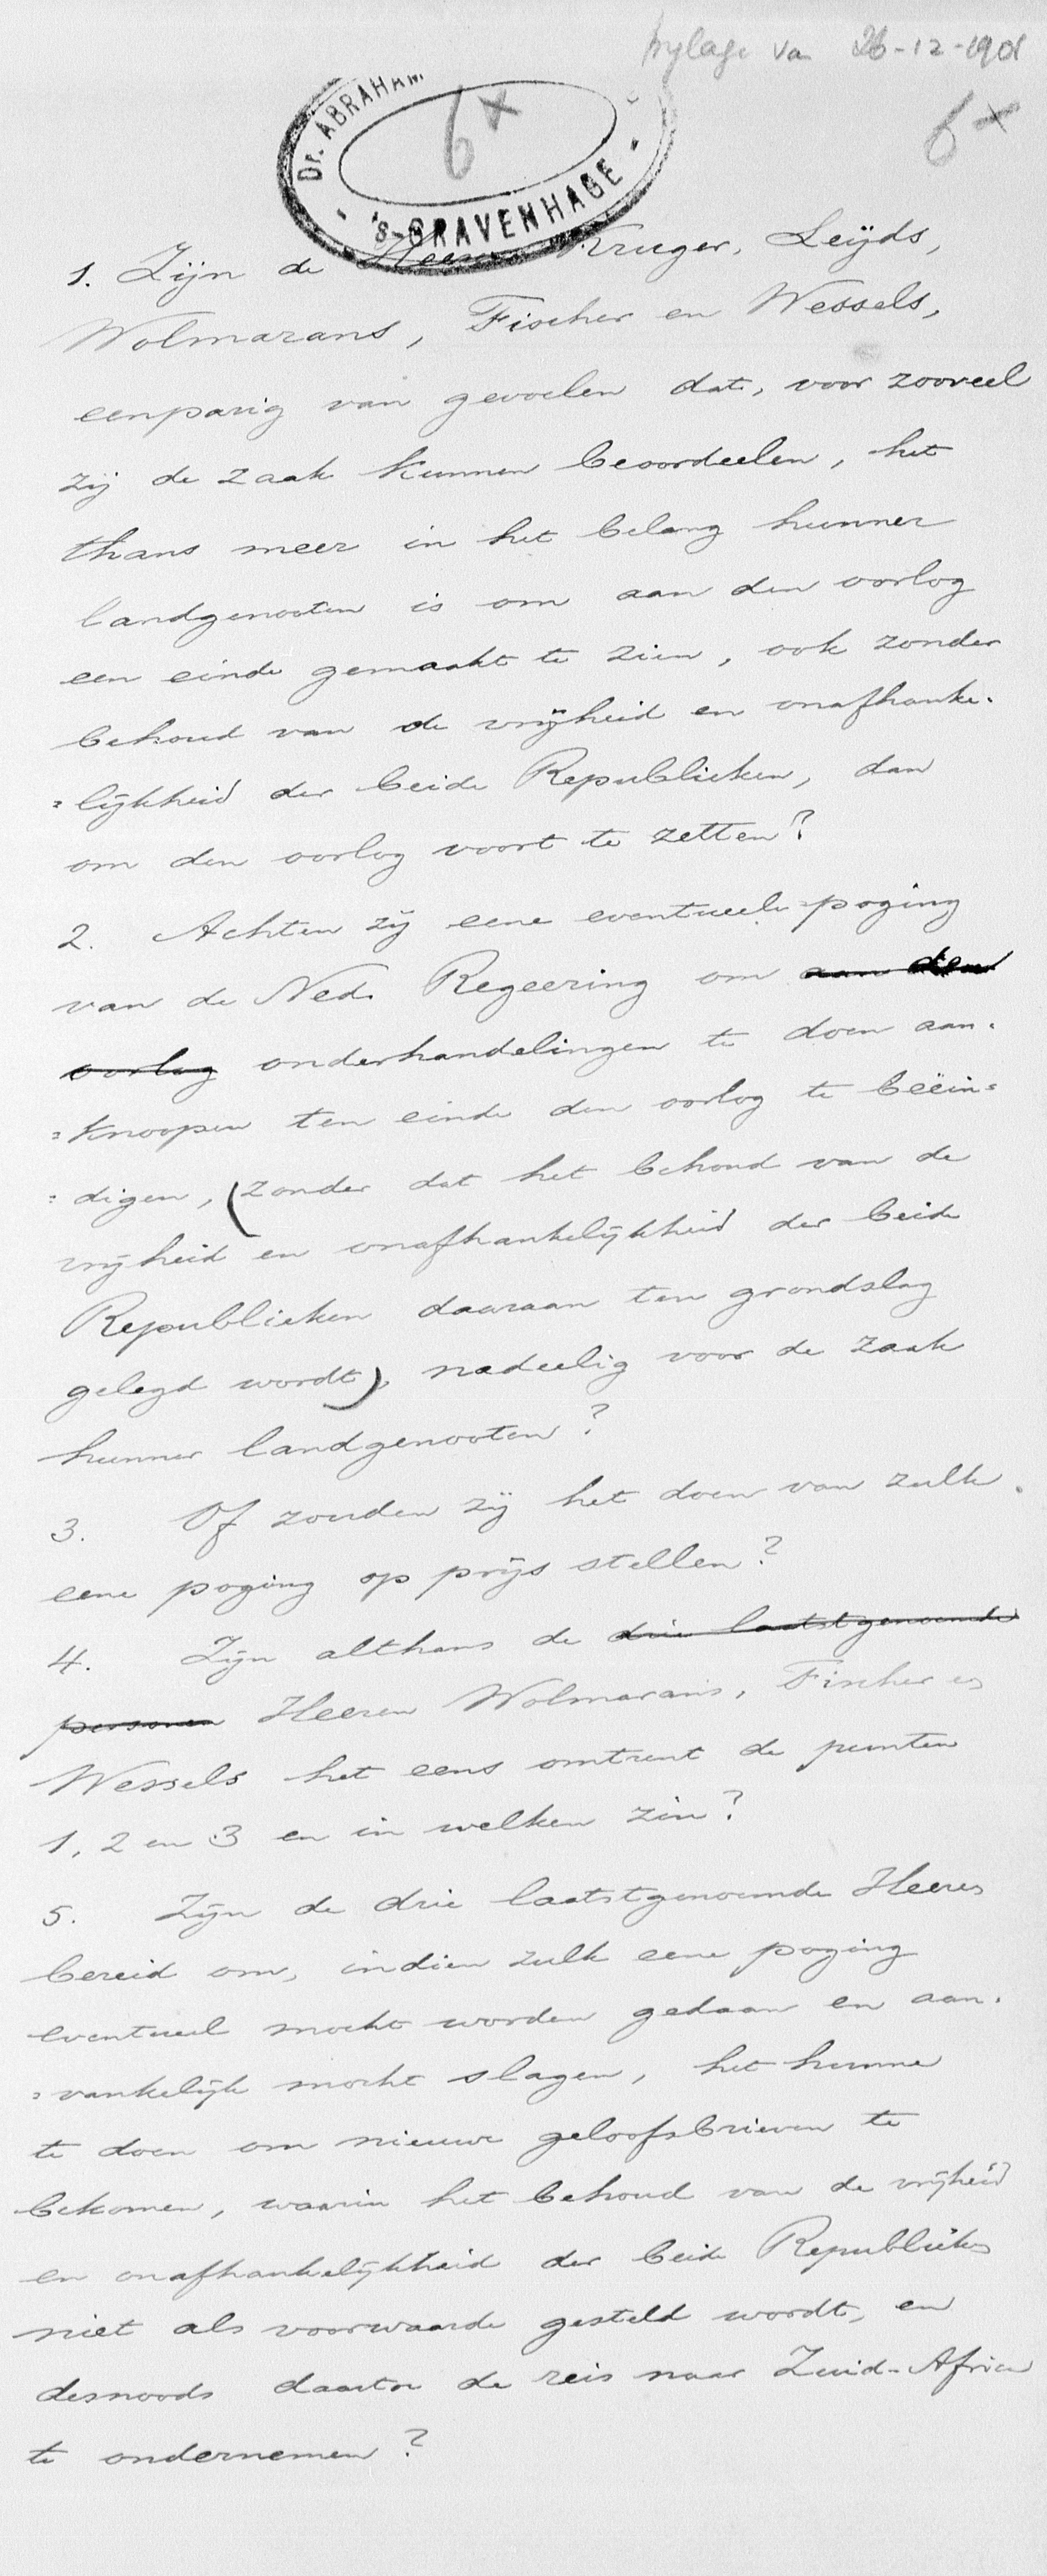 bylage va 26-12-1901
6x
Dr. ABRAHAM
6x
's-GRAVENHAGE
1. Zijn de Heeren Kruger, Leijds,
Wolmarans, Fischer en Wessels,
eenparig van gevoelen dat, voor zooveel
zij de zaak kunnen beoordeelen, het
thans meer in het belang hunner
landgenooten is om aan den oorlog
een einde gemaakt te zien, ook zonder
behoud van de vrijheid en onafhanke-
=lijkheid der beide Republieken, dan
om den oorlog voort te zetten?
2. Achten zij eene eventueele poging
van de Ned. Regeering om aan den
oorlog onderhandelingen te doen aan-
=knoopen ten einde den oorlog te beëin=
=digen, (zonder dat het behoud van de
vrijheid en onafhankelijkheid der beide
Republieken daaraan ten grondslag
gelegd wordt), nadeelig voor de zaak
hunner landgenooten?
3. Of zouden zij het doen van zulk
eene poging op prijs stellen?
4. Zijn althans de drie laatstgenoemde
personen Heeren Wolmarans, Fischer en
Wessels het eens omtrent de punten
1, 2 en 3 en in welken zin?
5. Zijn de drie laatstgenoemde Heeren
bereid om, indien zulk eene poging
eventueel mocht worden gedaan en aan-
=vankelijk mocht slagen, het hunne
te doen om nieuwe geloofsbrieven te
bekomen, waarin het behoud van de vrijheid
en onafhankelijkheid der beide Republieken
niet als voorwaarde gesteld wordt, en
desnoods daartoe de reis naar Zuid-Africa
te ondernemen?